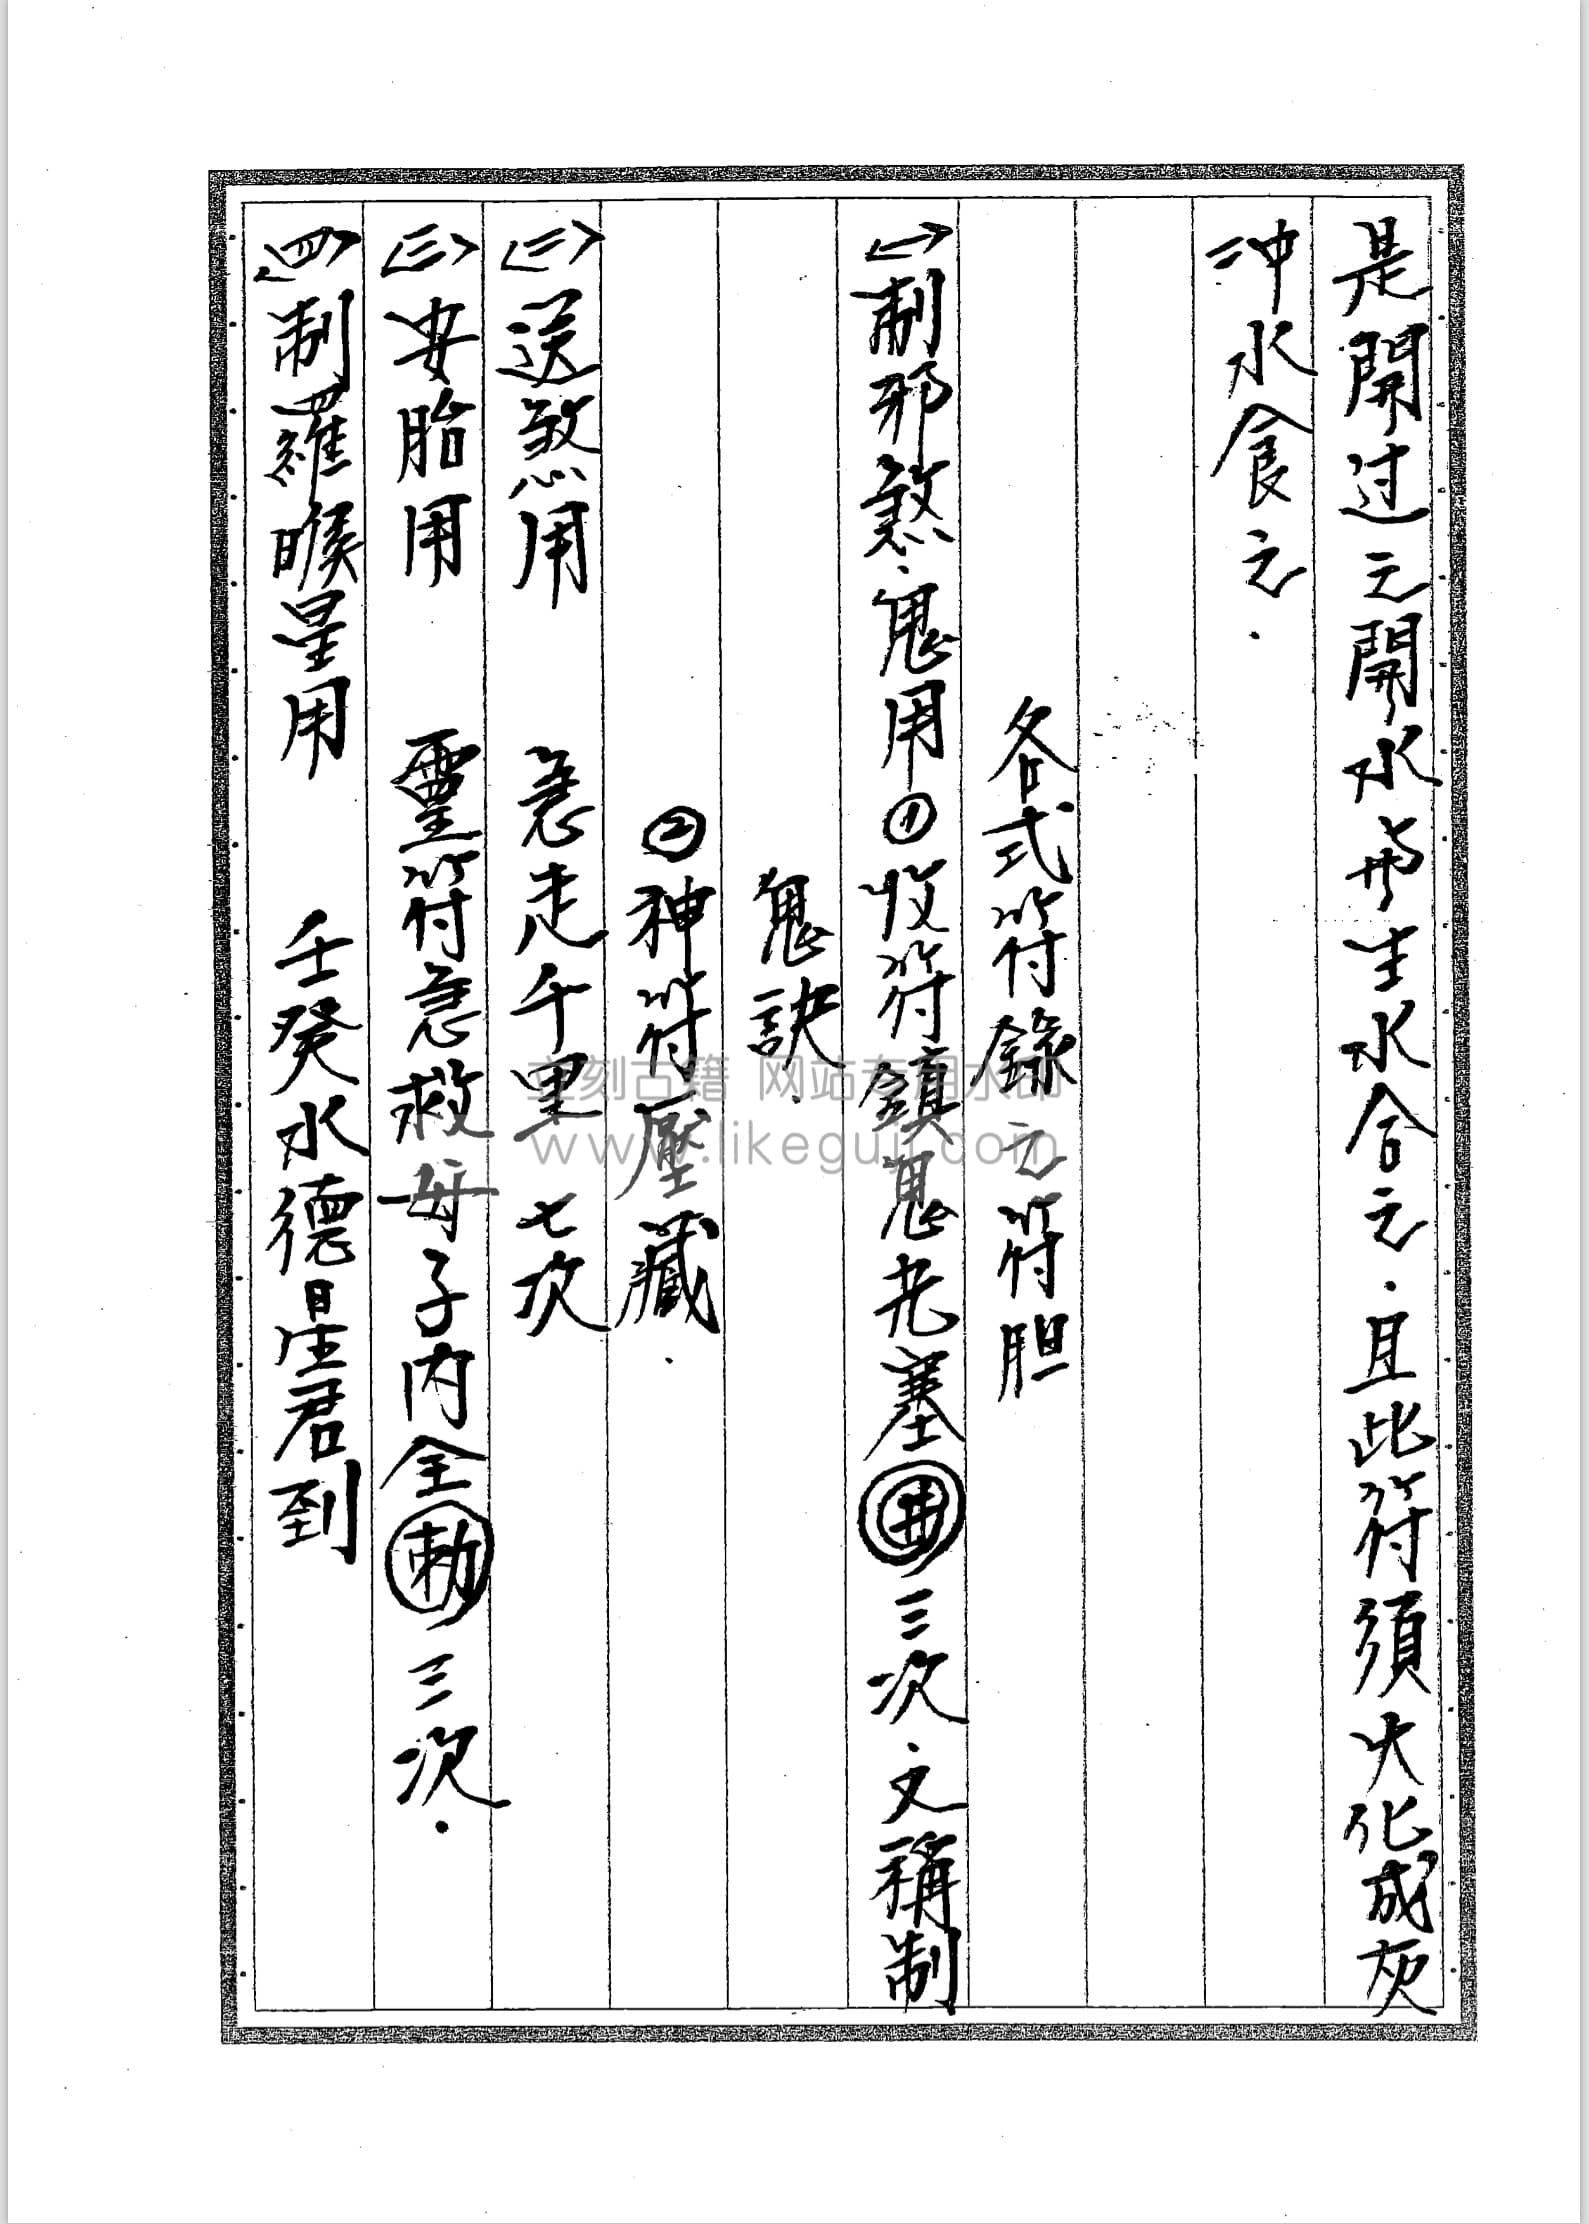 是開过之開水与生水合之．且此符須火化成灰
冲水食之．
各式符錄之符胆
㈠制邪煞．鬼用①收符鎮鬼 塞井三次．又稱制
鬼訣．
②神符壓藏．
㈡送煞用 急走千里 七次
㈢安胎用 靈符急救母子内全勅三次．
㈣制羅睺星用 壬癸水德星君到
立刻古籍 网站专用水印
www.likeguji.com